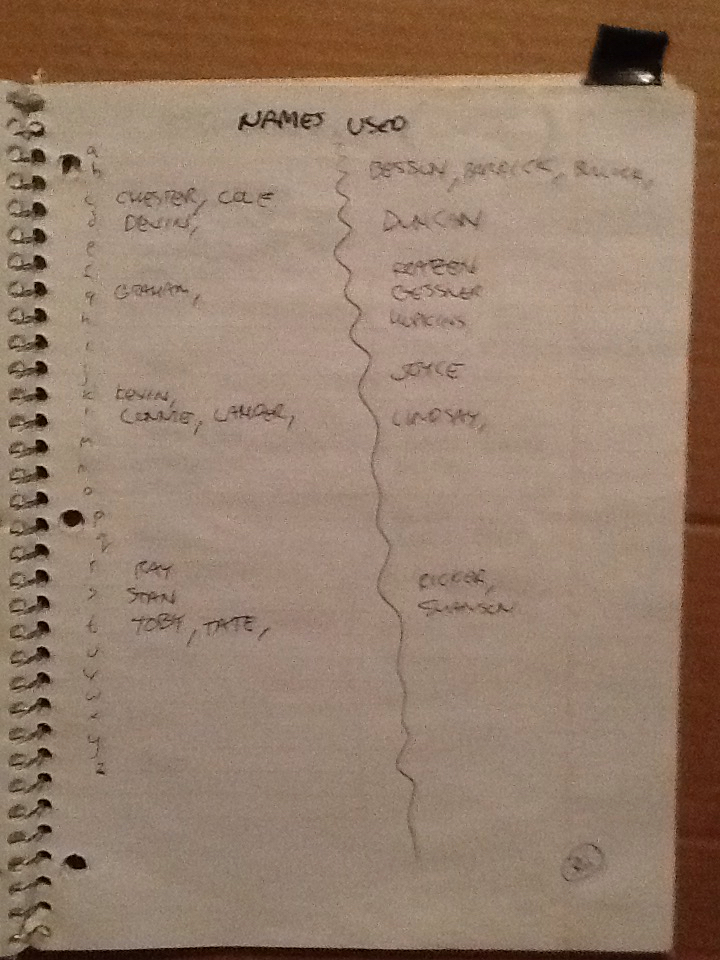 NAMES USED
a
b BESSON, BARRICK, BULLOCK,
c CHESTER, COLE
d DEVIN, DUNCAN
e
f
g GRAHAM, GESSNER
h HOPKINS
i
j JOYCE
k KEVIN,
l CONNIE, LANDER, LINDSAY,
m
n
o
p
q
r RAY RICKER,
s STAN SWANSON
t TOBY, TATE,
u
v
w
x
y
z